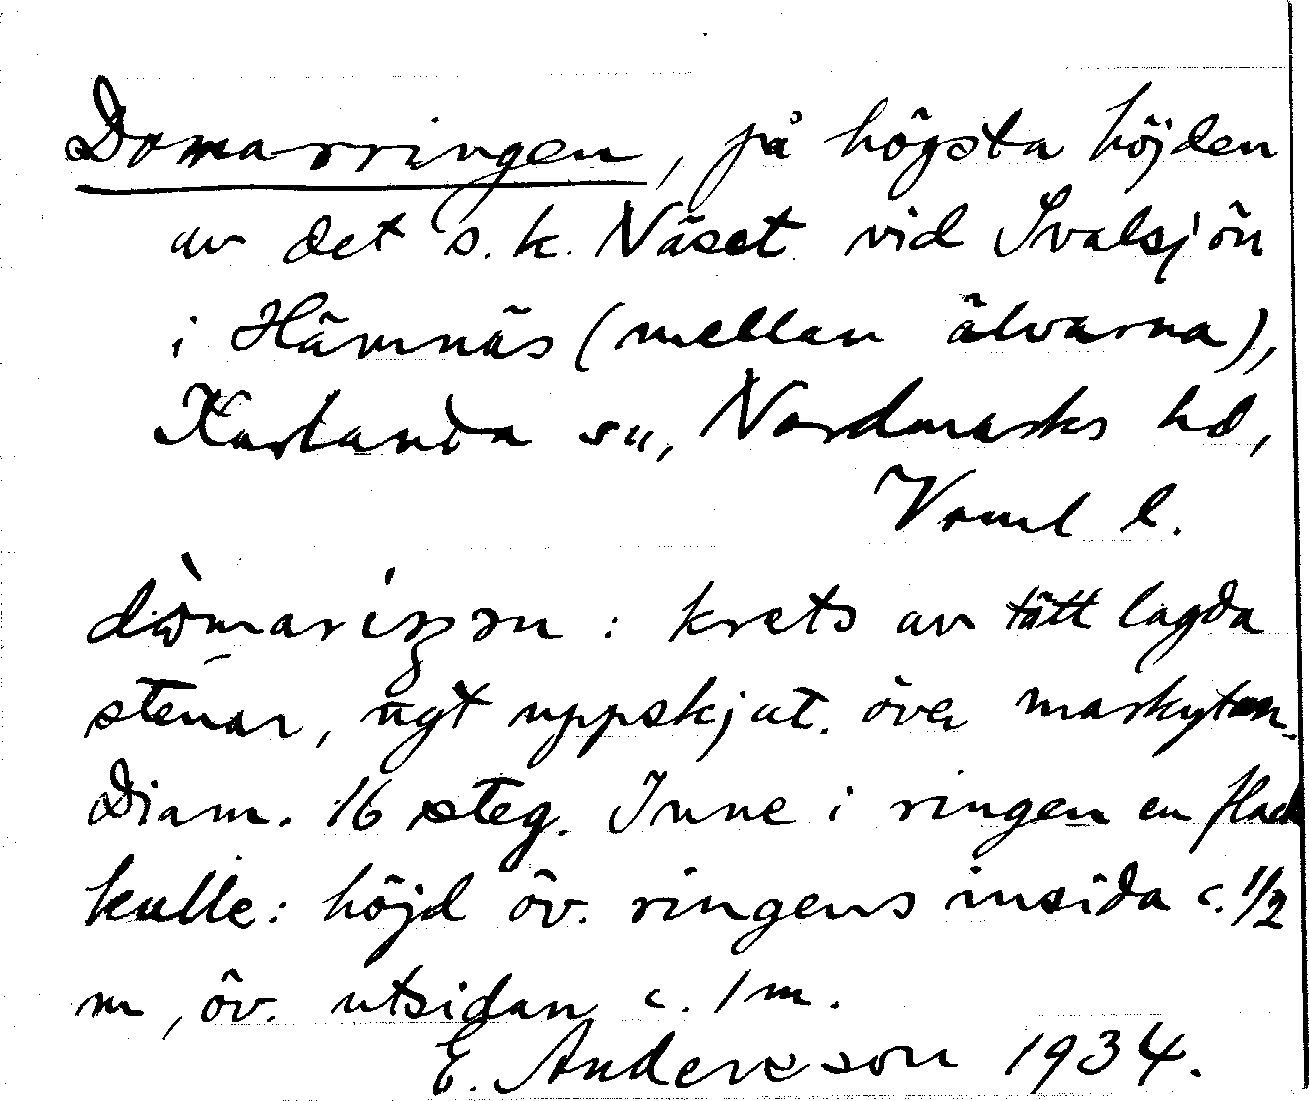 Domarringen, på högsta höjden
av det s.k. Näset vid Svalsjön
i Hämnäs (mellan älvarna),
Karlanda sn, Nordmarks hd,
Vrml l.
: krets av tätt lagda
stenar, ngt uppskjut. över markytan.
Diam. 16 steg. Inne i ringen en flack
kulle: höjd öv. ringens insida c. 1/2
m, öv. utsidan c. 1 m.
E. Andersson 1934.